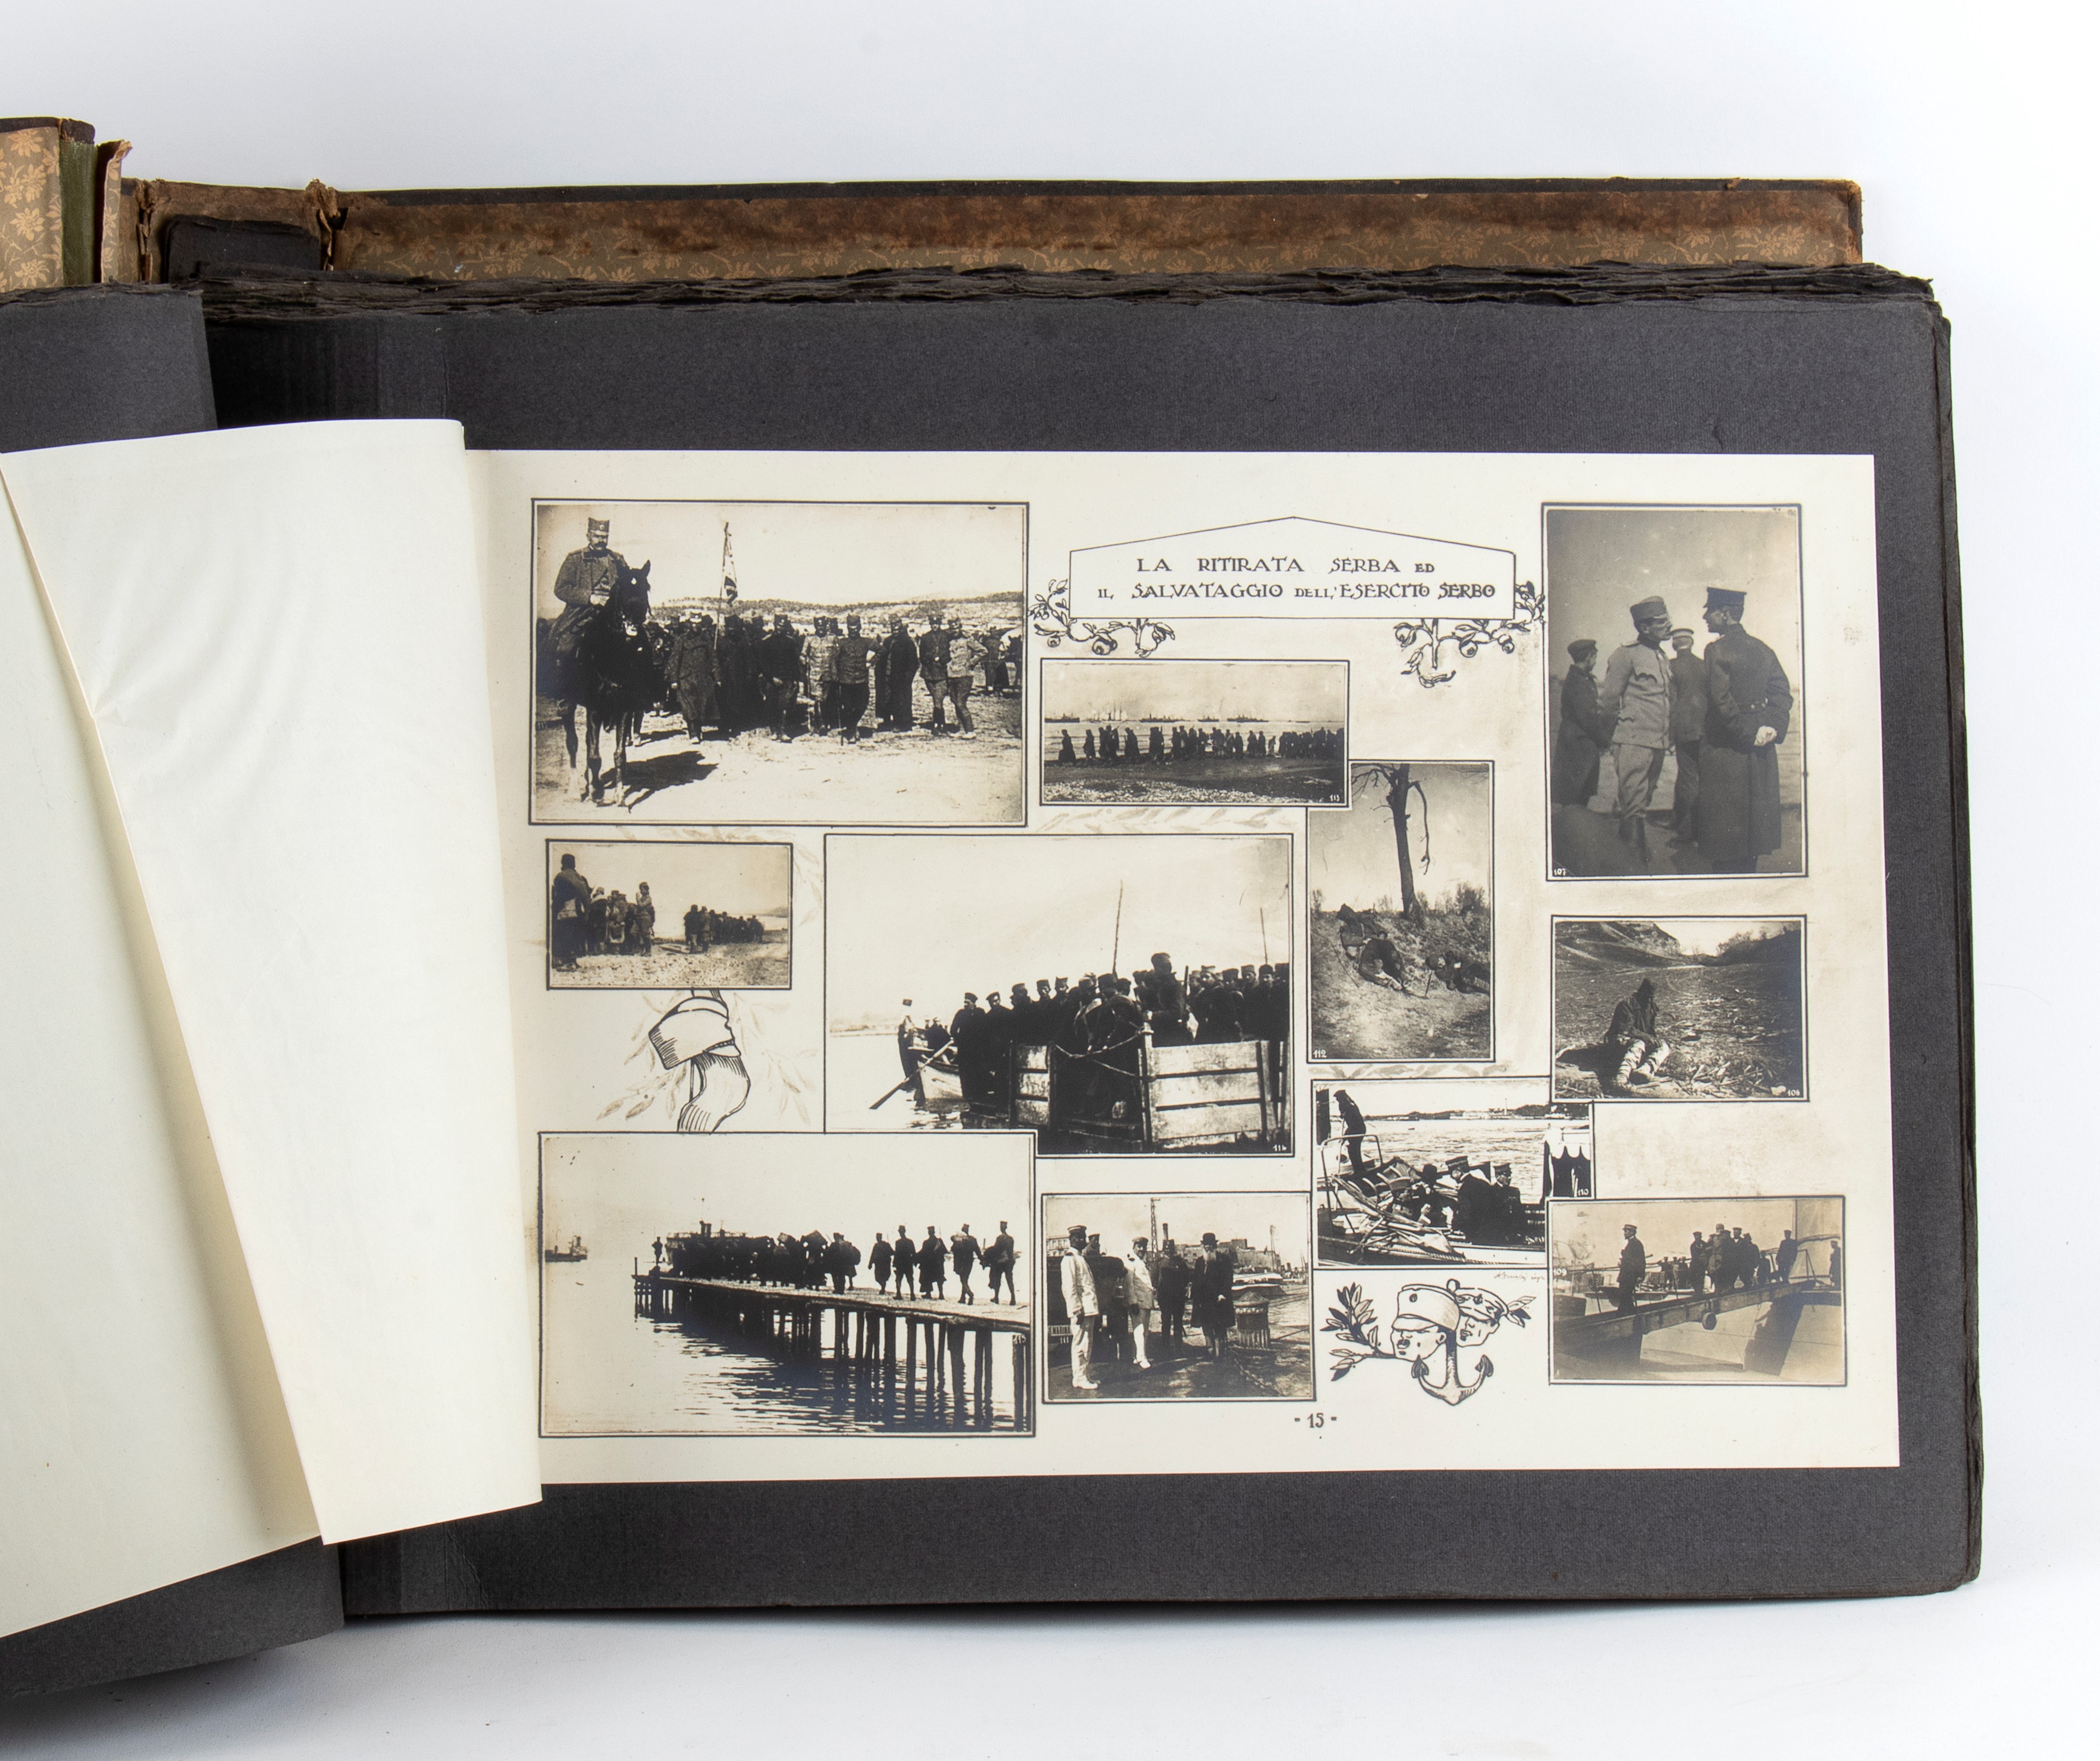 LA RITIRATA SERBA ED
IL SALVATAGGIO DELL'ESERCITO SERBO
113
107
112
114
110
109
111
- 15 -